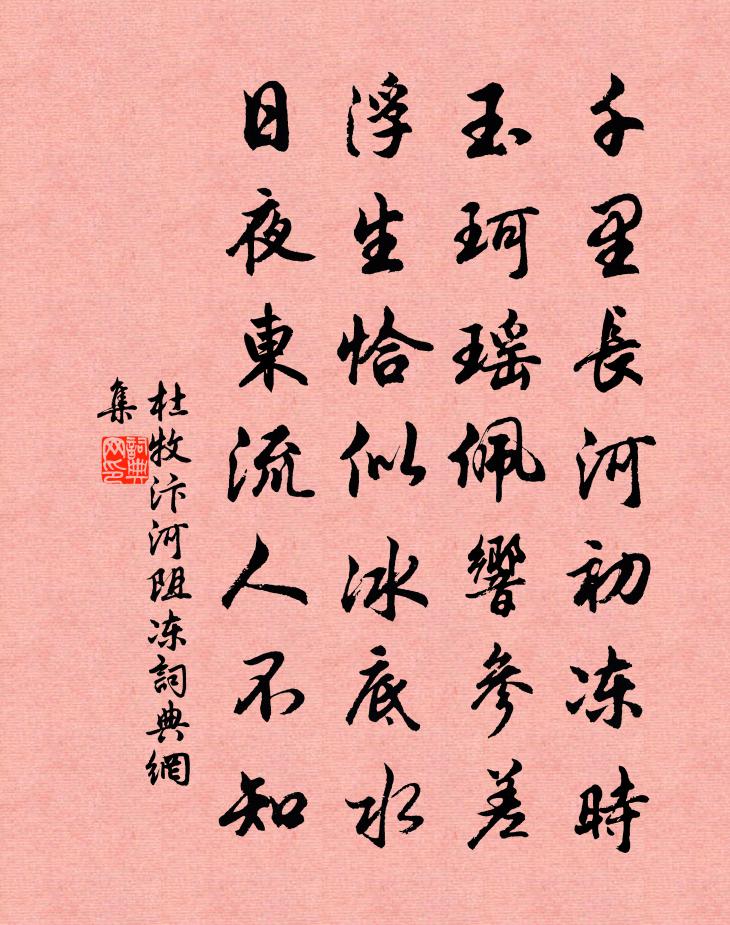 千里長河初冻時
玉珂瑶佩響參差
浮生恰似冰底水
日夜東流人不知
杜牧汴河阻冻詞典網
集
詞典
网印